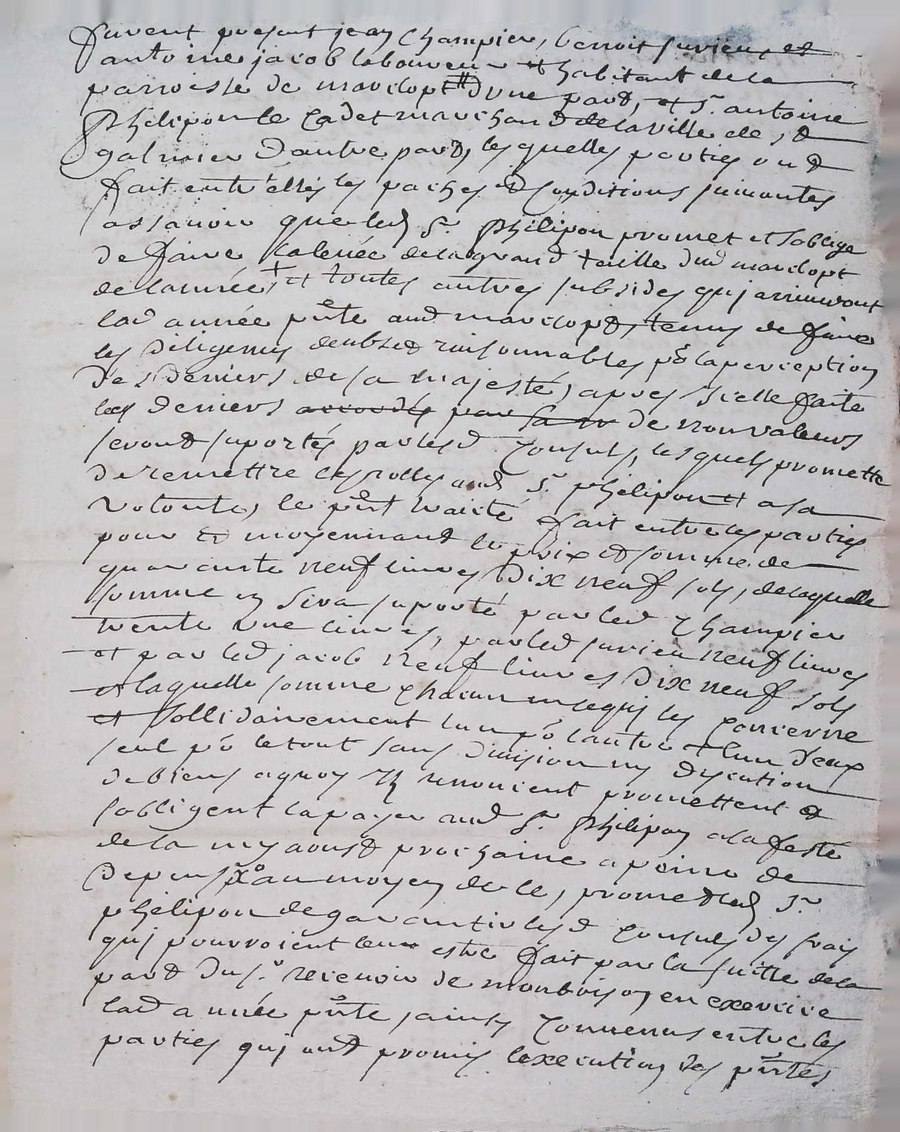 furent present jean Champier, benoit jurieu, et
antoine jacob laboureur et habitant de la
parroisse de marclopt d'une part, et sr. antoine
phelipon le cadet marchand de la ville de st
galmier d'autre part, les quelles parties ont
fait entr'elles les paches et conditions suivantes
assavoir que led sr. phelipon promet et s'oblige
de faire la levée de la grand taille dud marclopt
de l'année + et toutes autres subsides qui arriveront
lad année pnte aud marclopt, tenus de faire
les diligences deubs et raisonnables po la perception
des deniers de sa majesté, apres icelle faite
les deniers accordés par sa de non valeurs
seront suportés par lesd consuls, lesquels promette
de remettre les rolles aud sr. phelipon et a sa
volonté, le pnt traité fait entre les parties
pour et moyennant le prix et somme de
quarante neuf livres dix neuf sols, de laquelle
somme en sera suporté par led Champier
trente une livres, par led jurieu neuf livres
et par led jacob neuf livres dix neuf sols
et laquelle somme chacun en ce qui les concerne
et sollidairement l'un po l'autre et l'un d'eux
seul po le tout sans division ny discution
de biens a quoy ils renoncent promettent et
s'obligent la payer aud sr. phelipon a la feste
de la my aoust prochaine a peine de
depens, au moyen de ce, promet led sr.
phelipon de garantir lesd consuls des frais
qui pourroient leur estre fait par la suitte de la
part du sr. receveur de montbrison en exercice
lad année pnte, ainsy convenus entre les
parties qui ont promis l'execution des pntes